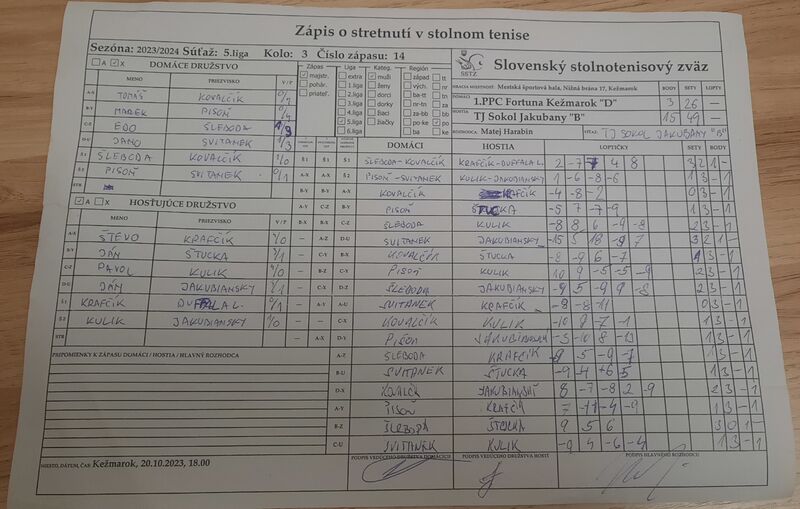 Zápis o stretnutí v stolnom tenise
Sezóna: 2023/2024 Súťaž: 5.liga Kolo: 3 Číslo zápasu: 14
Slovenský stolnotenisový zväz
SSTZ
A X DOMÁCE DRUŽSTVO
MENO PRIEZVISKO V/P
A-X TOMÁŠ KOVALČÍK
B-Y MAREK PISOŇ
C-Z EDO ŠLEBODA
D-U JANO SVITANEK 1/3
Š1 ŠLEBODA KOVALČÍK 1/0
Š2 PISOŇ SVITANEK 0/1
STR
A X HOSŤUJÚCE DRUŽSTVO
MENO PRIEZVISKO V/P
A-X ŠTEVO KRAFČÍK 4/0
B-Y JÁN ŠTUCKA
C-Z PAVOL KULIK
D-U JÁN JAKUBIANSKY
Š1 KRAFČÍK 0/1
Š2 KULIK JAKUBIANSKY 1/0
STR
PRIPOMIENKY K ZÁPASU DOMÁCI / HOSTIA / HLAVNÝ ROZHODCA
MIESTO, DÁTUM, ČAS: Kežmarok, 20.10.2023, 18.00
Zápas Liga Kateg. Región
majstr. extra muži západ tt
pohár. 1.liga ženy vých. nr
priateľ. 2.liga dorci ba-tt tn
3.liga dorky nr-tn za
4.liga žiaci za-bb bb
5.liga žiačky po-ke po
6.liga ba ke
HRACIA MIESTNOSŤ: Mestská športová hala, Nižná brána 17, Kežmarok BODY SETY LOPTY
DOMÁCI 1.PPC Fortuna Kežmarok "D" 3 26 —
HOSTIA TJ Sokol Jakubany "B" 15 49 —
ROZHODCA Matej Harabin VÍŤAZ: TJ SOKOL JAKUBANY "B"
DOMÁCI HOSTIA LOPTIČKY SETY BODY
Š1 Š1 ŠLEBODA-KOVALČÍK 2 -7 7 4 8 3 2 1 -
A-X Š2 PISOŇ-SVITANEK KULIK-JAKUBIANSKY 1 -6 -8 -6 1 3 - 1
B-Y A-X KOVALČÍK KRAFČÍK -4 -8 -2 0 3 - 1
B-Y PISOŇ ŠTUCKA -5 7 -7 -9 1 3 - 1
C-Z ŠLEBODA KULIK -8 8 6 -9 -8 2 3 - 1
D-U SVITANEK JAKUBIANSKY -15 5 18 -9 7 3 2 1 -
B-X KOVALČÍK ŠTUCKA -8 -9 6 -7 1 3 - 1
C-Y PISOŇ KULIK 10 9 -5 -5 -9 2 3 - 1
D-Z ŠLEBODA JAKUBIANSKY -9 5 -9 9 -8 2 3 - 1
A-U SVITANEK KRAFČÍK -9 -8 -11 0 3 - 1
C-X KOVALČÍK KULIK -10 8 -7 -1 1 3 - 1
D-Y PISOŇ -3 -10 8 -13 1 3 - 1
A-Z ŠLEBODA KRAFČÍK -9 5 -9 -7 1 3 - 1
B-U SVITANEK ŠTUCKA 1 3 - 1
D-X KOVALČÍK 8 -7 -8 2 -9 2 3 - 1
A-Y PISOŇ KRAFČÍK 7 -11 -4 -9 1 3 - 1
B-Z ŠLEBODA ŠTUCKA 9 5 6 3 0 1 -
C-U SVITANEK KULIK -9 4 -6 -4 1 3 - 1
PODPIS VEDÚCEHO DRUŽSTVA DOMÁCICH PODPIS VEDÚCEHO DRUŽSTVA HOSTÍ PODPIS HLAVNÉHO ROZHODCU